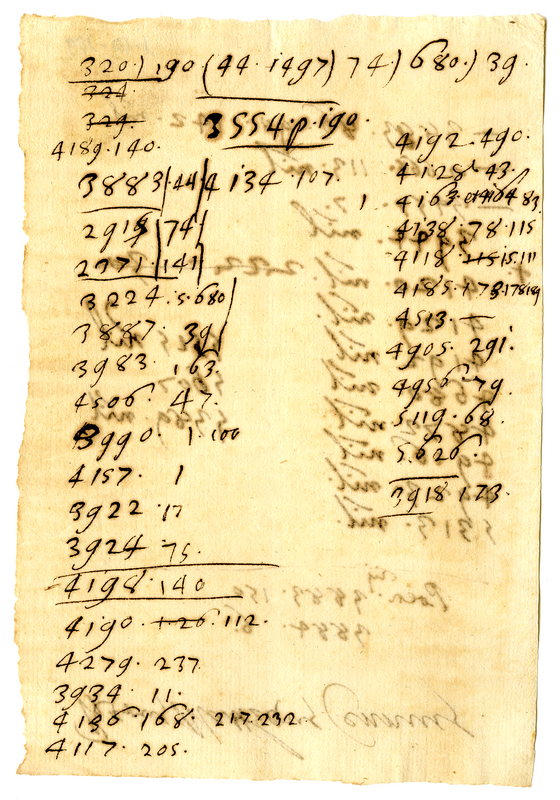 320) 190 (44. 1497) 74) 680.) 39.
324
329.
3554. p. 190.
4189. 140.
3883 44
4134 107.
2919 74
2371 141
3224. 5. 680
3887. 39
3983. 163.
4506. 47.
3990. 1. 100
4157. 1
3922. 17
3924 75.
4198. 140
4190. 126. 112.
4279. 237
3934. 11.
4196. 168. 217. 232
4117. 205.
4192. 490.
4128. 43.
1 4163. 83.
4138. 78. 115
4118. 115. 111
4185.
4513. —
4905. 291.
4956. 79.
5119. 68.
5626.
3918. 173.